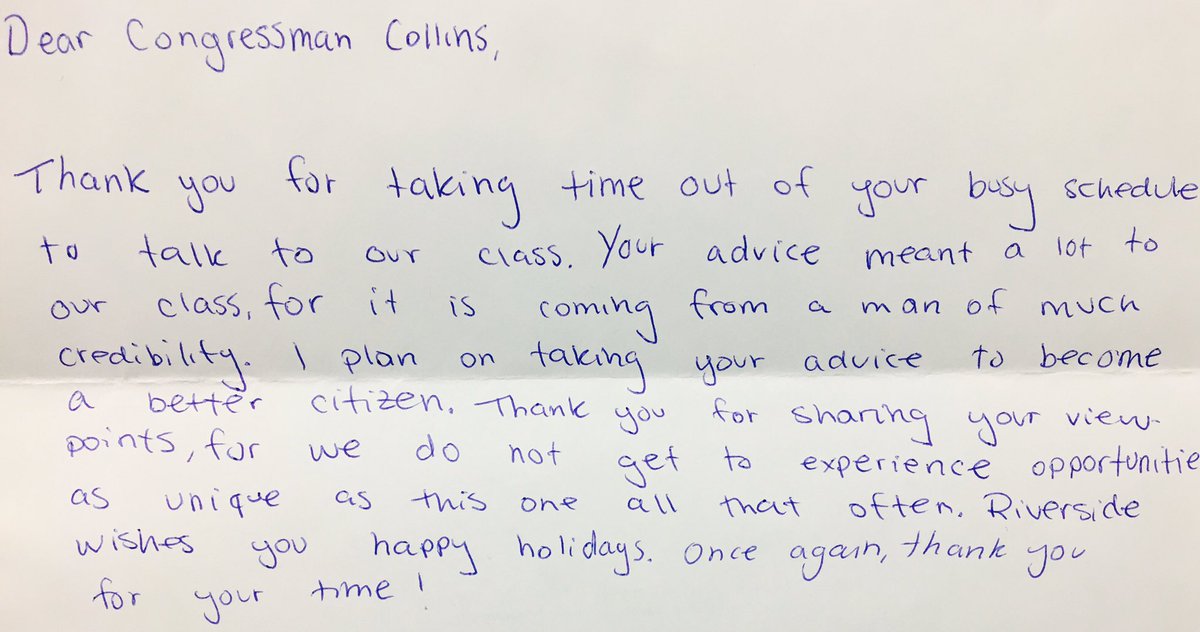 Dear Congressman Collins,
Thank you for taking time out of your busy schedule
to talk to our class. Your advice meant a lot to
our class, for it is coming from a man of much
credibility. I plan on taking your advice to become
a better citizen. Thank you for sharing your view-
points, for we do not get to experience opportunitie
as unique as this one all that often. Riverside
wishes you happy holidays. Once again, thank you
for your time!